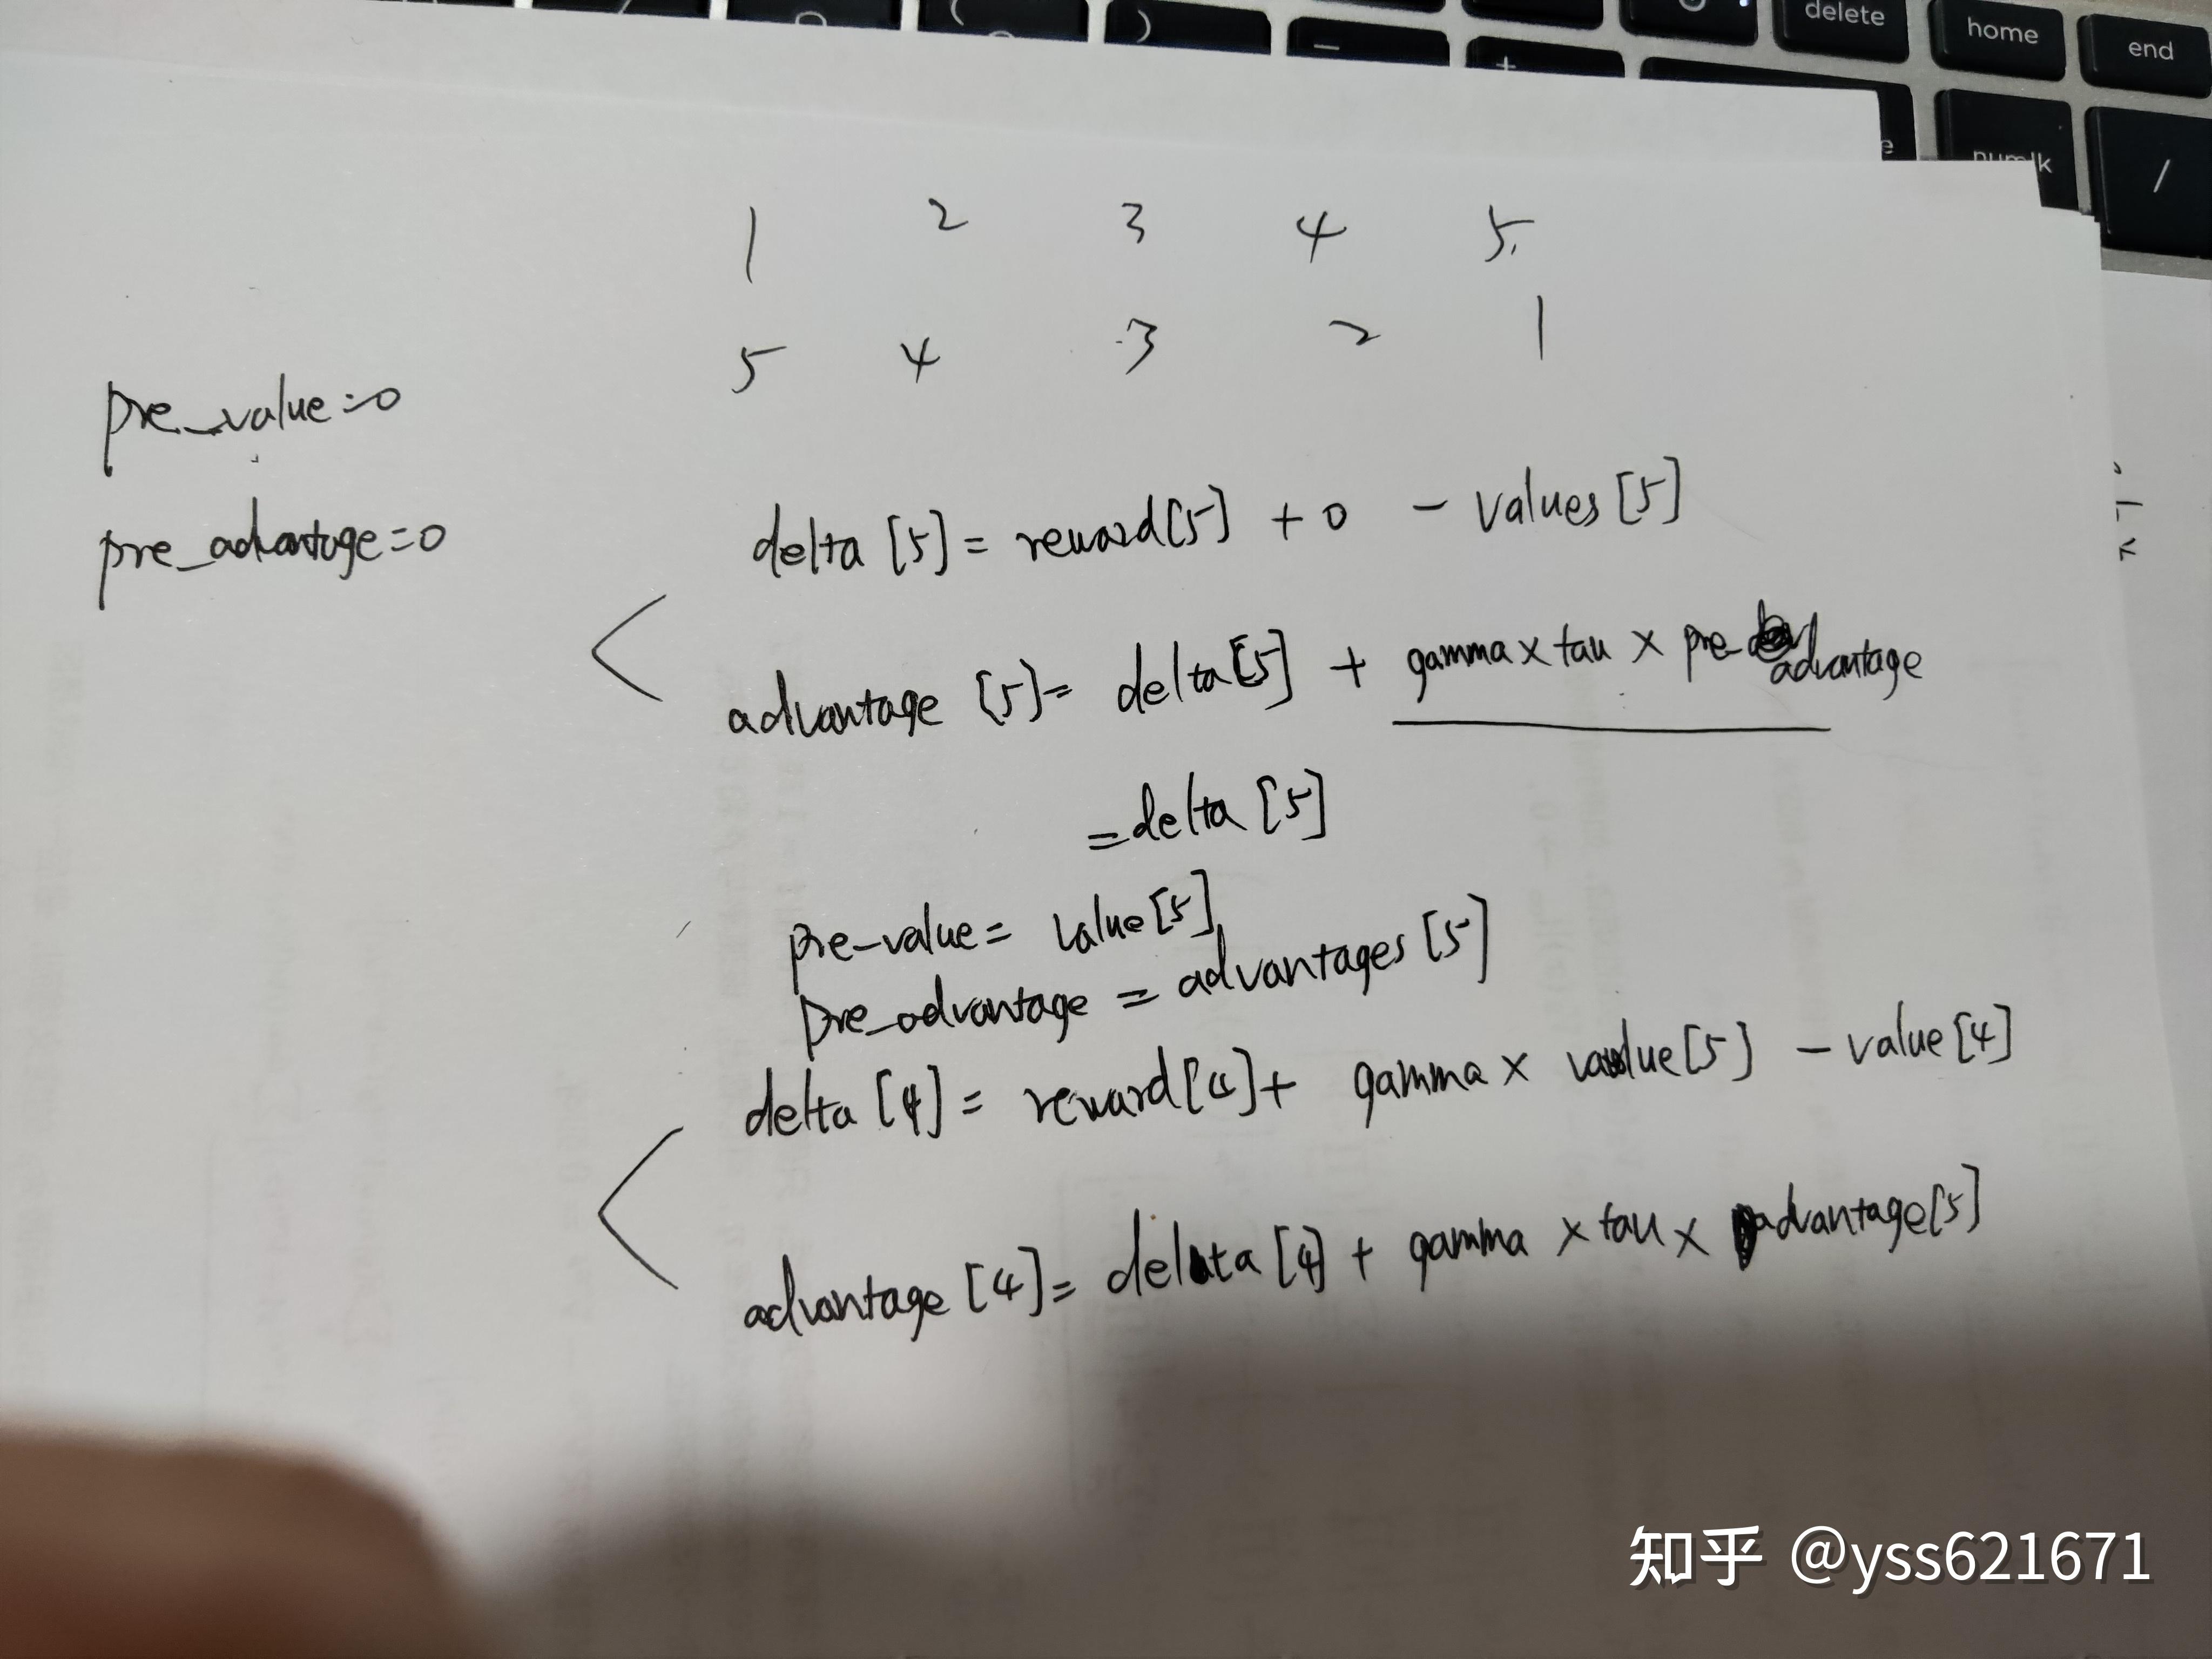 delete home end
numlk /
1 2 3 4 5.
5 4 3 2 1
pre_value=0
pre_advantage=0
delta [5] = reward[5] + 0 - values [5]
advantage [5]= delta[5] + gamma x tau x pre- advantage
=delta [5]
pre-value= value[5]
pre_advantage = advantages [5]
delta [4] = reward[4]+ gamma x value[5] - value[4]
advantage [4]= delta [4] + gamma x tau x advantage[5]
知乎 @yss621671